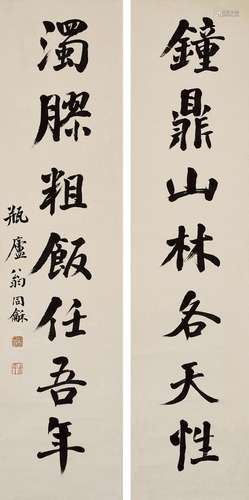 鐘鼎山林各天性
濁醪粗飯任吾年
瓶廬翁同龢